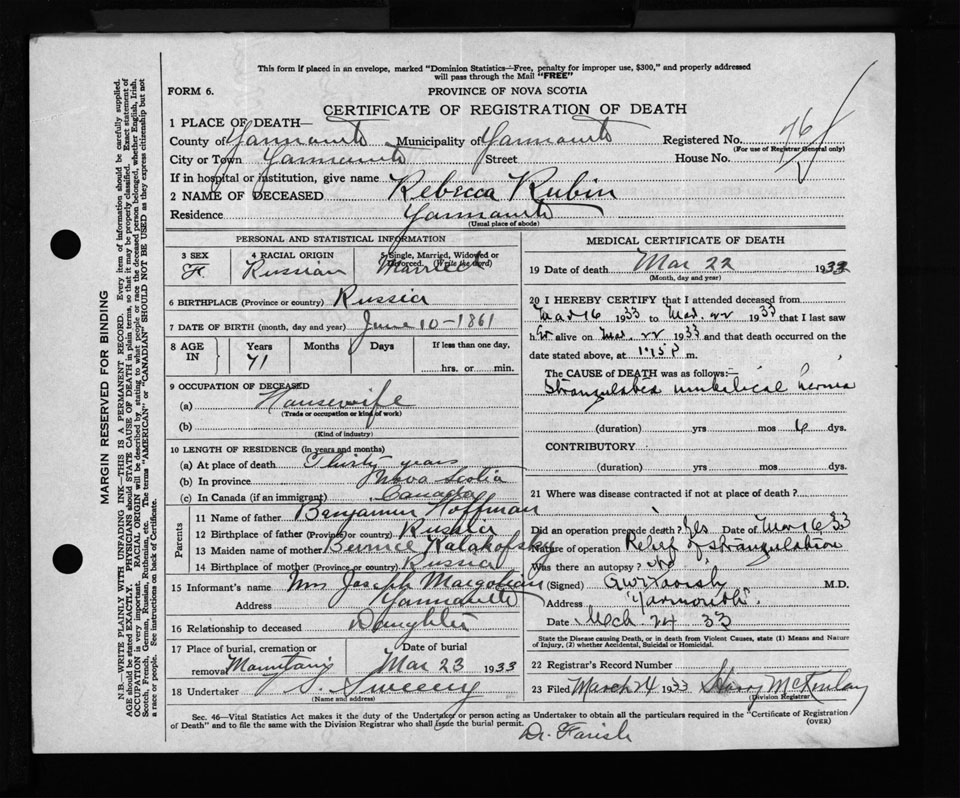 This form if placed in an envelope, marked "Dominion Statistics—Free, penalty for improper use, $300," and properly addressed
will pass through the Mail "FREE"
FORM 6.
PROVINCE OF NOVA SCOTIA
CERTIFICATE OF REGISTRATION OF DEATH
1 PLACE OF DEATH—
County of Yarmouth Municipality of Yarmouth Registered No. 76
(For use of Registrar General only)
City or Town Yarmouth Street House No.
If in hospital or institution, give name
2 NAME OF DECEASED Rebecca Rubin
Residence Yarmouth
(Usual place of abode)
PERSONAL AND STATISTICAL INFORMATION
3 SEX 4 RACIAL ORIGIN 5 Single, Married, Widowed or
Divorced. (Write the word)
F. Russian Married
6 BIRTHPLACE (Province or country) Russia
7 DATE OF BIRTH (month, day and year) June 10 - 1861
8 AGE IN Years Months Days If less than one day,
71 hrs. or min.
9 OCCUPATION OF DECEASED
(a) Housewife
(Trade or occupation or kind of work)
(b)
(Kind of industry)
10 LENGTH OF RESIDENCE (in years and months)
(a) At place of death Thirty years
(b) In province Nova Scotia
(c) In Canada (if an immigrant) Canada
Parents
11 Name of father Benjamin Hoffman
12 Birthplace of father (Province or country) Russia
13 Maiden name of mother Kalakofsky
14 Birthplace of mother (Province or country) Russia
15 Informant's name Mrs Joseph Margolian
Address Yarmouth
16 Relationship to deceased Daughter
17 Place of burial, cremation or Date of burial
removal Mountain Mar 23 1933
18 Undertaker Sweeny
(Name and address)
MEDICAL CERTIFICATE OF DEATH
19 Date of death Mar 22 1933
(Month, day and year)
20 I HEREBY CERTIFY that I attended deceased from
Mar 16 1933 to Mar. 22 1933 that I last saw
her alive on Mar. 22 1933 and that death occurred on the
date stated above, at 1.15 P m.
The CAUSE of DEATH was as follows:
Strangulated umbilical hernia
(duration) yrs mos 6 dys.
CONTRIBUTORY
(duration) yrs mos dys.
21 Where was disease contracted if not at place of death?
Did an operation precede death? Yes Date of Mar 16 33
Nature of operation Relief of strangulation
Was there an autopsy? no
(Signed) Farish M.D.
Address "Yarmouth".
Date Mch 24 33
State the Disease causing Death, or in death from Violent Causes, state (1) Means and Nature
of Injury, (2) whether Accidental, Suicidal or Homicidal.
22 Registrar's Record Number
23 Filed March 24 1933 Harry McKinlay
(Division Registrar)
Sec. 46—Vital Statistics Act makes it the duty of the Undertaker or person acting as Undertaker to obtain all the particulars required in the "Certificate of Registration
of Death" and to file the same with the Division Registrar who shall issue the burial permit. (OVER)
Dr. Farish
MARGIN RESERVED FOR BINDING
N.B.—WRITE PLAINLY WITH UNFADING INK—THIS IS A PERMANENT RECORD. Every item of information should be carefully supplied.
AGE should be stated EXACTLY. PHYSICIANS should STATE CAUSE OF DEATH in plain terms, so that it may be properly classified. Exact statement of
OCCUPATION is very important. RACIAL ORIGIN will be described by stating to what people or race the deceased person belonged, whether English, Irish,
Scotch, French, German, Russian, Ruthenian, etc. The terms "AMERICAN" or "CANADIAN" SHOULD NOT BE USED as they express citizenship but not
a race or people. See instructions on back of Certificate.